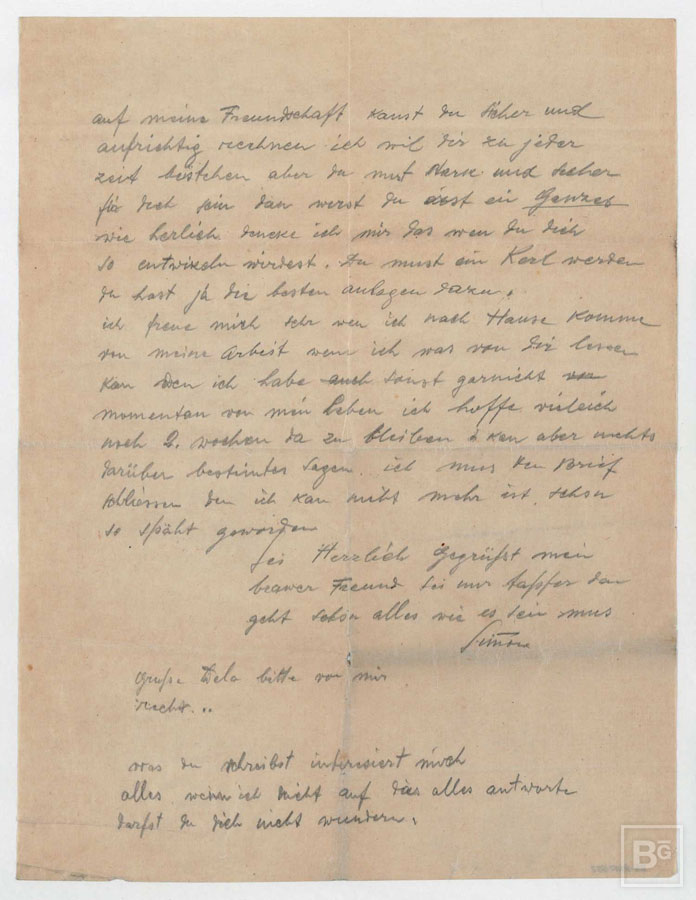 auf meine Freundschaft kanst du sicher und
aufrichtig rechnen ich wil dir zu jeder
zeit beistehen aber du must stark und sicher
für dich sein dan werst du erst ein Ganzes
wie herlich dencke ich mir das wen du dich
so entwikeln wirdest. Du must ein Kerl werden
du hast ja die besten anlagen dazu.
ich freue mich sehr wen ich nach Hause komme
von meine Arbeit wenn ich was von Dir lesen
kan den ich habe auch sonst garnicht
momentan von mein leben ich hoffe vieleich
noch 2. wochen da zu bleiben kan aber nichts
darüber bestimtes sagen. ich mus den Brief
schliessen den ich kan nicht mehr ist schon
so späht geworden
sei Herzlich Gegrüßt mein
brawer Freund sei nur tapfer dan
geht schon alles wie es sein mus
Simon
Grüße bitte von mir
recht..
was du schreibst interesiert mich
alles wenn ich nicht auf das alles antworte
darfst du dich nicht wundern.
BG